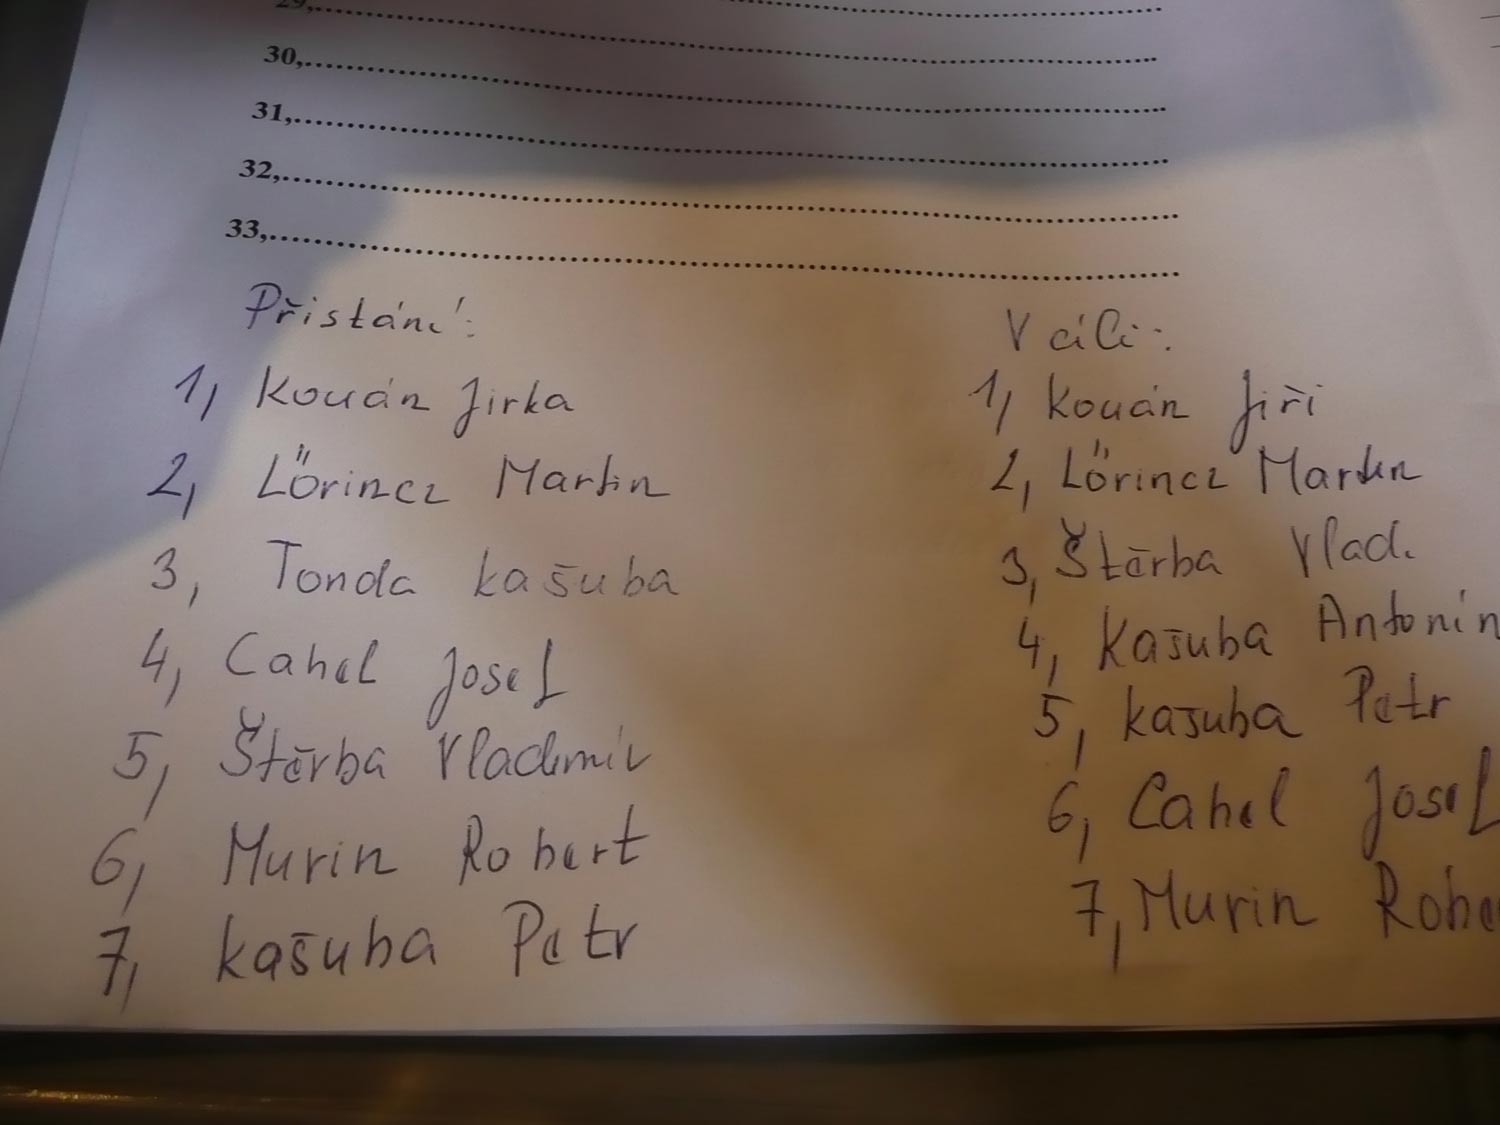 29,
30,
31,
32,
33,
Přistání:
1, Kouán Jirka
2, Lőrincz Martin
3, Tonda Kašuba
4, Cahel Josef
5, Štěrba Vladimír
6, Murin Robert
7, Kašuba Petr
V cíli:
1, Kouán Jiří
2, Lőrincz Martin
3, Štěrba Vlad.
4, Kašuba Antonín
5, Kašuba Petr
6, Cahel Josef
7, Murin Robe